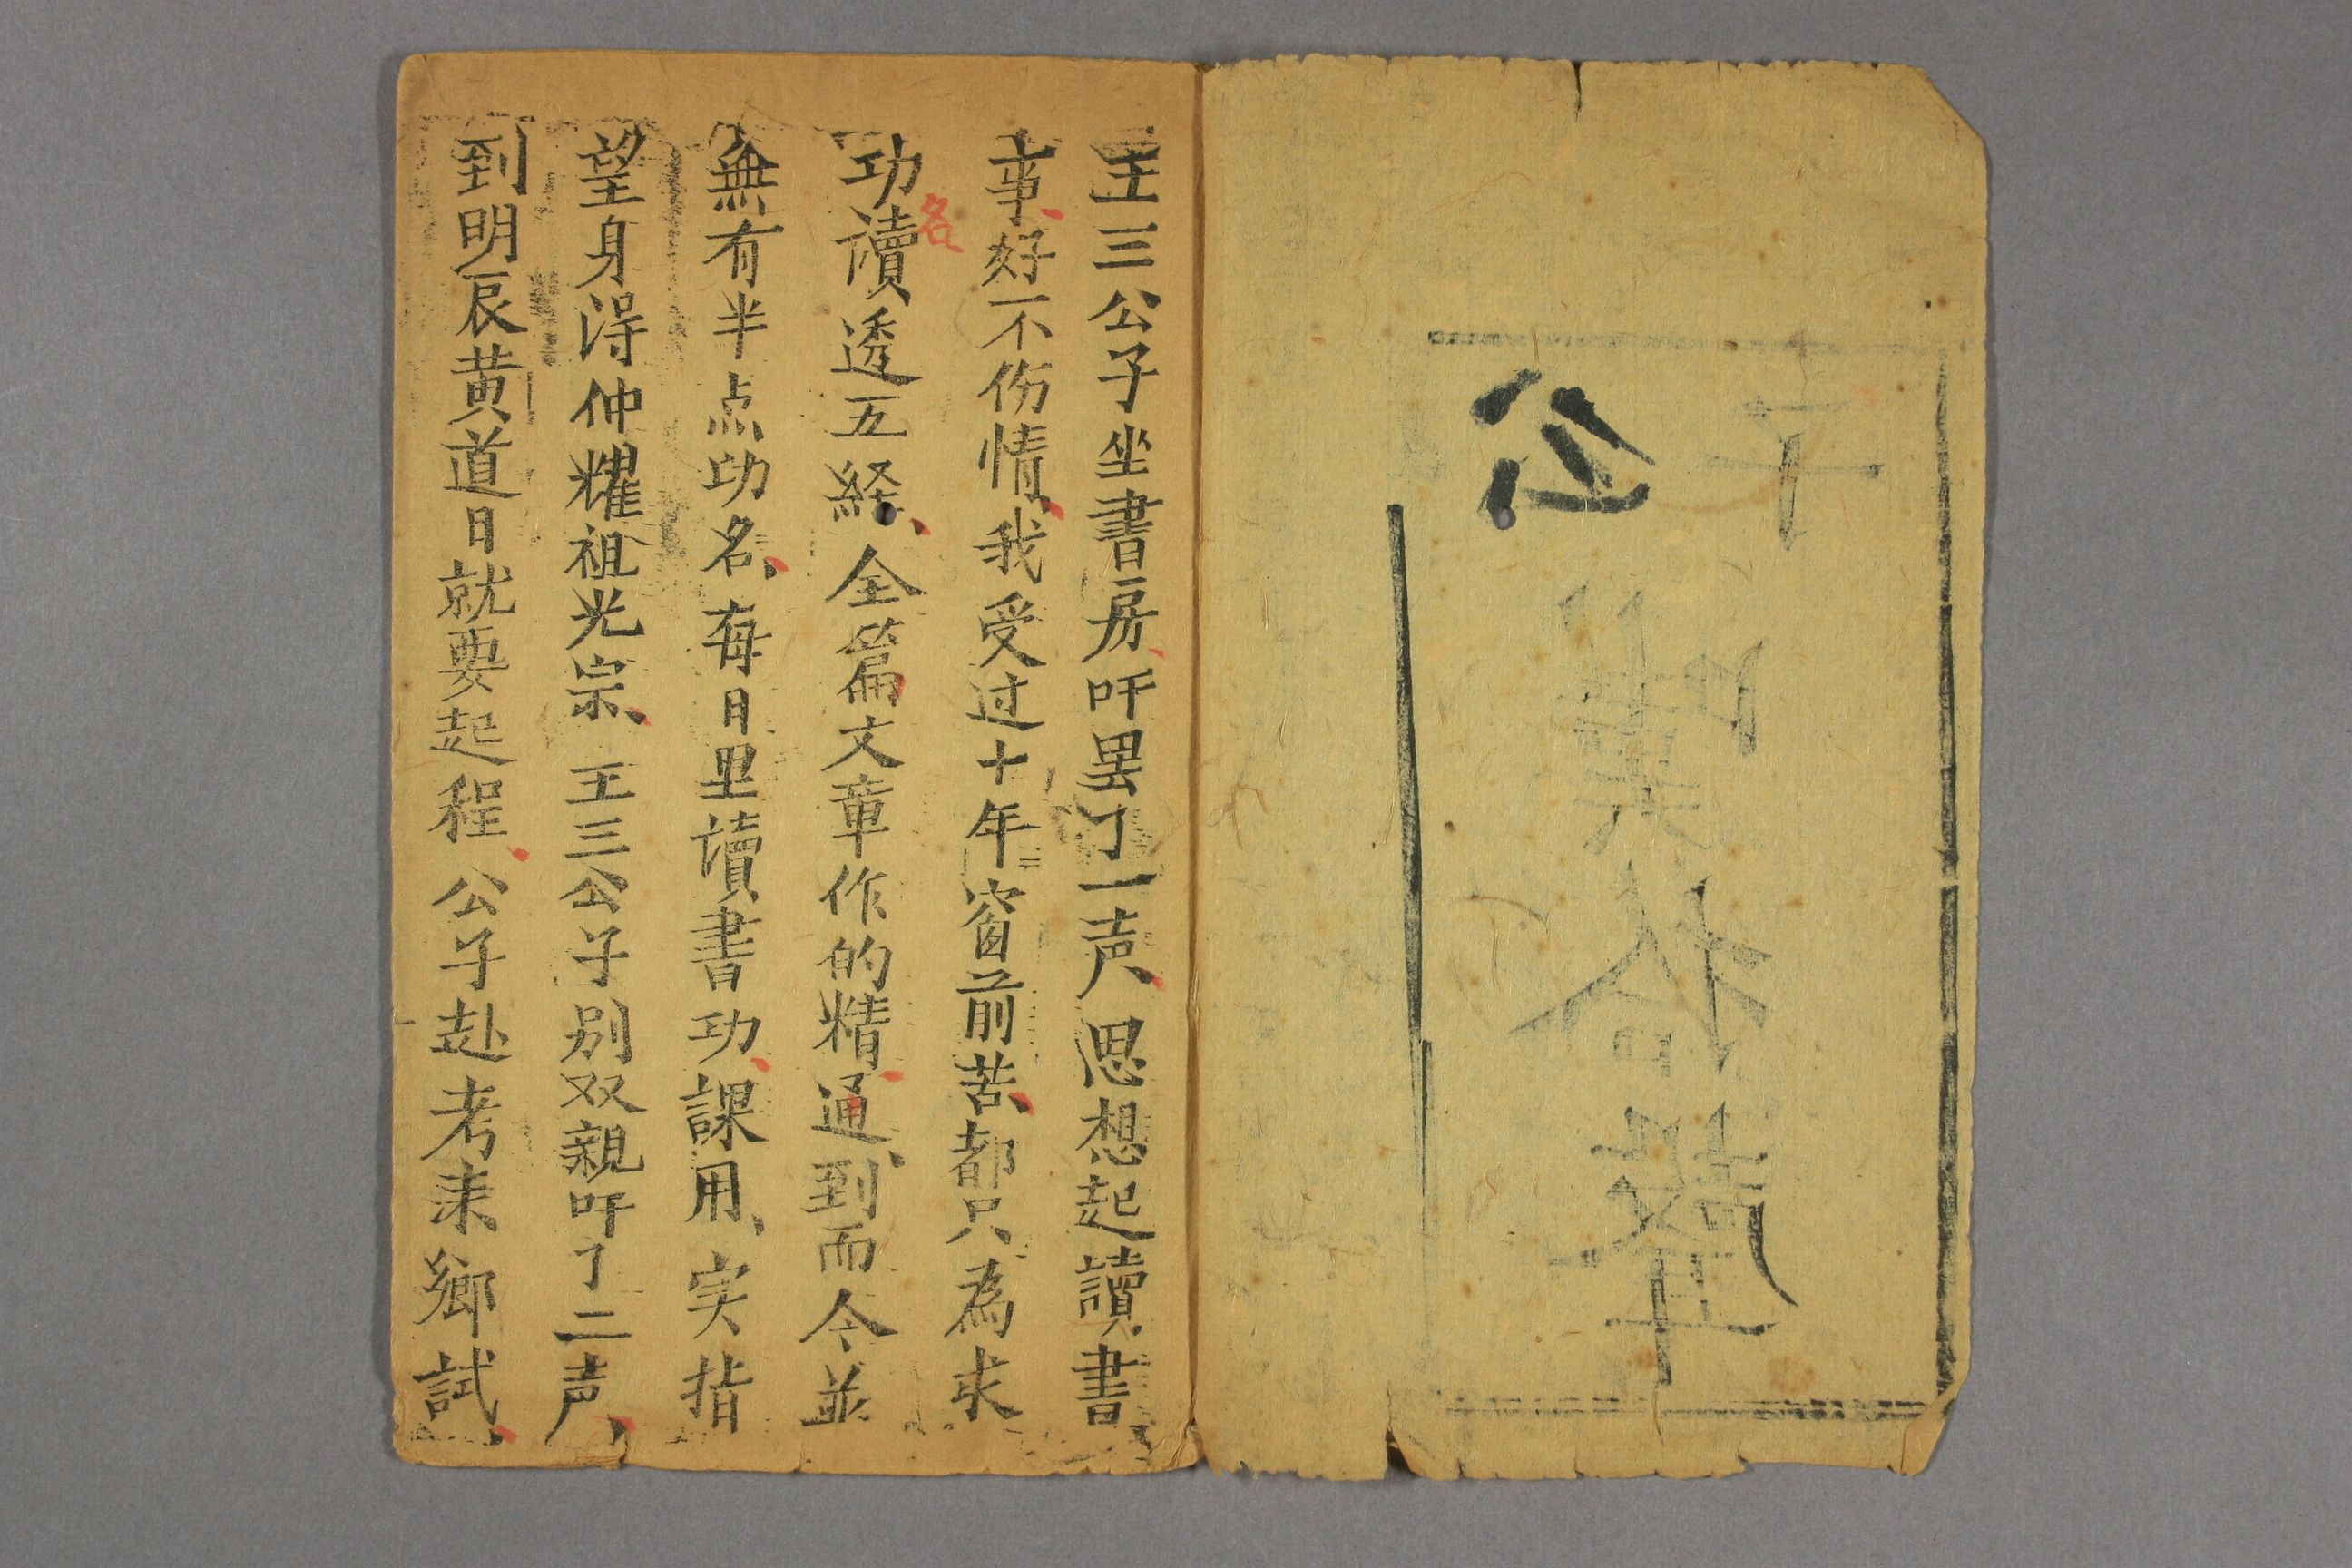 公
王三公子坐書房吁罢了一声思想起讀書
事好不伤情我受过十年窗前苦都只為求
功
名
讀透五経全篇文章作的精通到而今並
無有半点功名每日里讀書功課用实指
望身淂仲耀祖光宗王三公子别双親吁了二声
到明辰黄道日就要起程公子赴考来鄉試